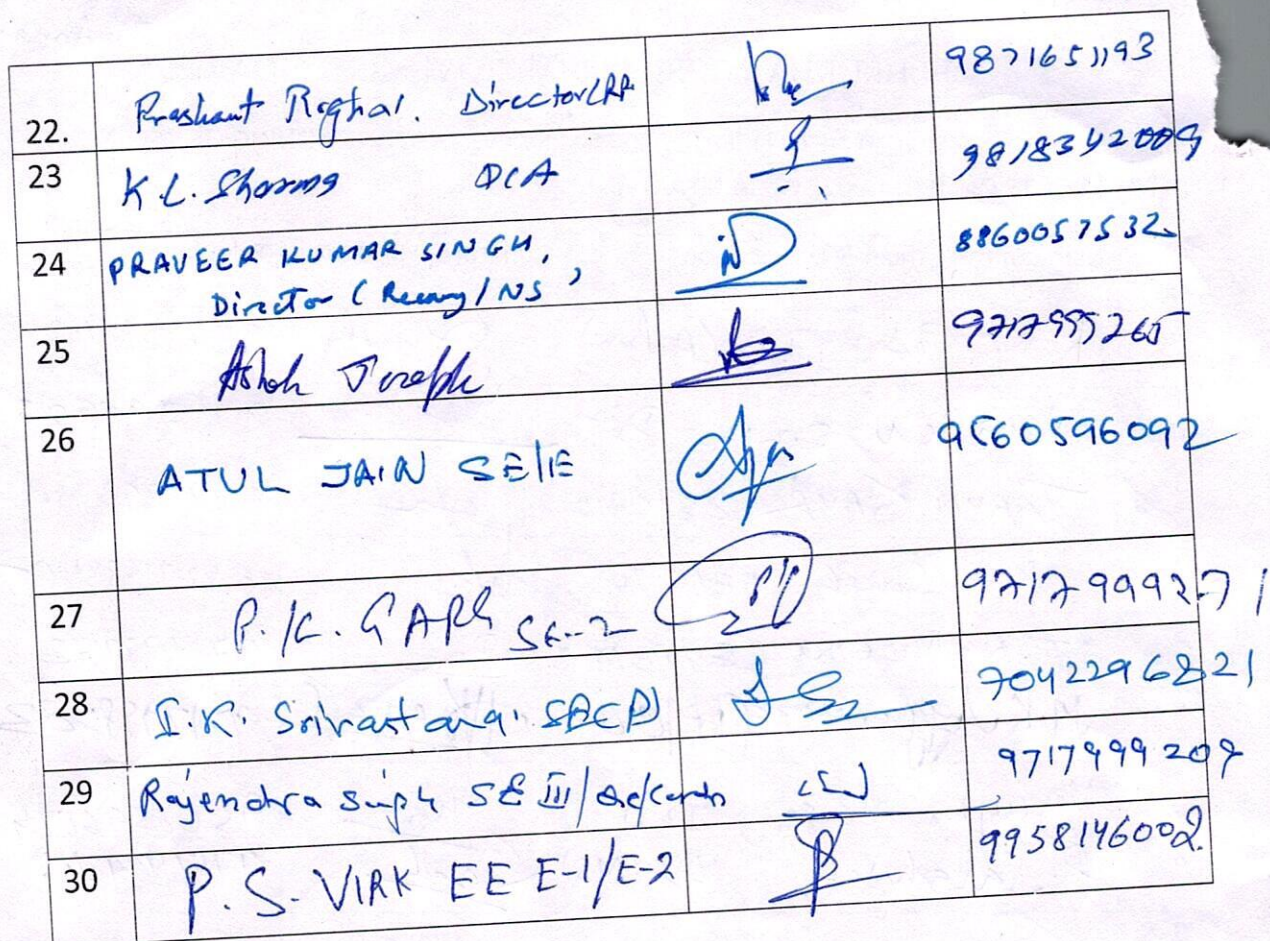 22. Prashant Raghal. Director(RP. 9871651193
23 K.L. Sharma DCA 9818342009
24 PRAVEER KUMAR SINGH, 8860057532
Director ( /NS ,
25 Ashok 
26 ATUL JAIN SE/IE 9560596092
27 P.K. GARG SE-2 9717999271
28 I.K. Srivastava, SE(P) 7042296821
29 Rajendra Singh SE III/ 9717999207
30 P.S. VIRK EE E-1/E-2 9958146002